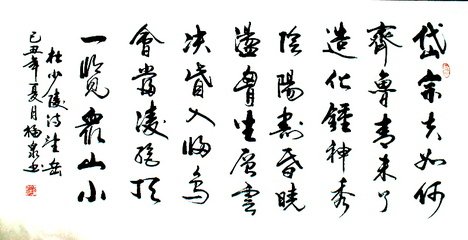 岱宗夫如何
齊魯青未了
造化鍾神秀
陰陽割昏曉
盪胷生層雲
決眥入歸鳥
會當凌絕頂
一覽眾山小
杜少陵詩望岳
己丑年夏月福泉书